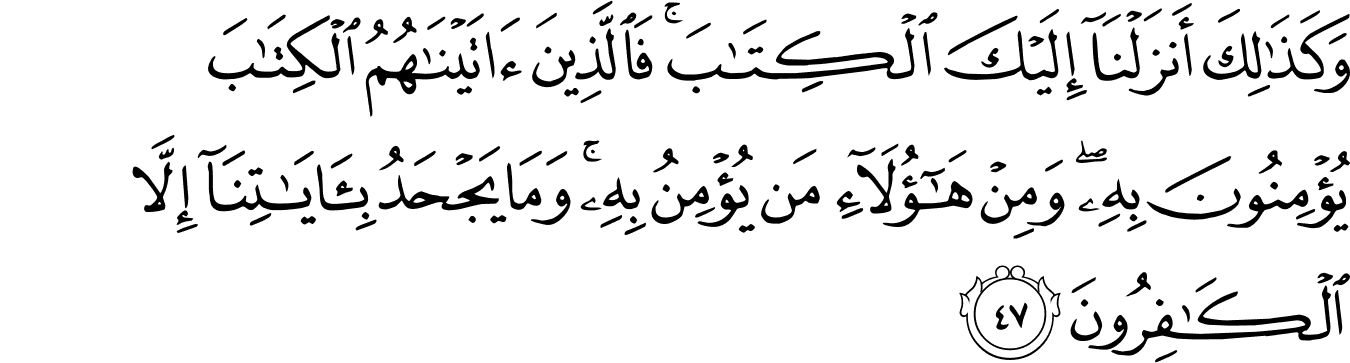 وَكَذَٰلِكَ أَنزَلْنَآ إِلَيْكَ ٱلْكِتَـٰبَ ۚ فَٱلَّذِينَ ءَاتَيْنَـٰهُمُ ٱلْكِتَـٰبَ
يُؤْمِنُونَ بِهِۦ ۖ وَمِنْ هَـٰٓؤُلَآءِ مَن يُؤْمِنُ بِهِۦ ۚ وَمَا يَجْحَدُ بِـَٔايَـٰتِنَآ إِلَّا
ٱلْكَـٰفِرُونَ ٤٧